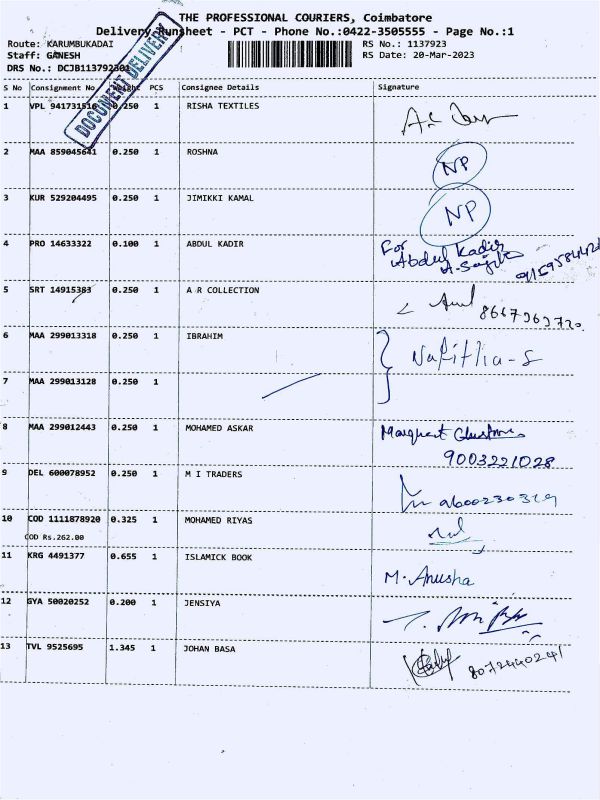 THE PROFESSIONAL COURIERS, Coimbatore
Delivery Runsheet - PCT - Phone No.:0422-3505555 - Page No.:1
Route: KARUMBUKADAI RS No.: 1137923
Staff: GANESH RS Date: 20-Mar-2023
DRS No.: DCJB113792301
DOCUMENT DELIVERY
S No Consignment No Weight PCS Consignee Details Signature
1 VPL 941731516 0.250 1 RISHA TEXTILES
2 MAA 859045641 0.250 1 ROSHNA NP
3 KUR 529204495 0.250 1 JIMIKKI KAMAL NP
4 PRO 14633322 0.100 1 ABDUL KADIR For
Abdul Kadir
5 SRT 14915383 0.250 1 A R COLLECTION
8667363720
6 MAA 299013318 0.250 1 IBRAHIM
7 MAA 299013128 0.250 1
8 MAA 299012443 0.250 1 MOHAMED ASKAR
9003221028
9 DEL 600078952 0.250 1 M I TRADERS
10 COD 1111878920 0.325 1 MOHAMED RIYAS
COD Rs.262.00
11 KRG 4491377 0.655 1 ISLAMICK BOOK M. Anusha
12 GYA 50020252 0.200 1 JENSIYA
13 TVL 9525695 1.345 1 JOHAN BASA 8072440241